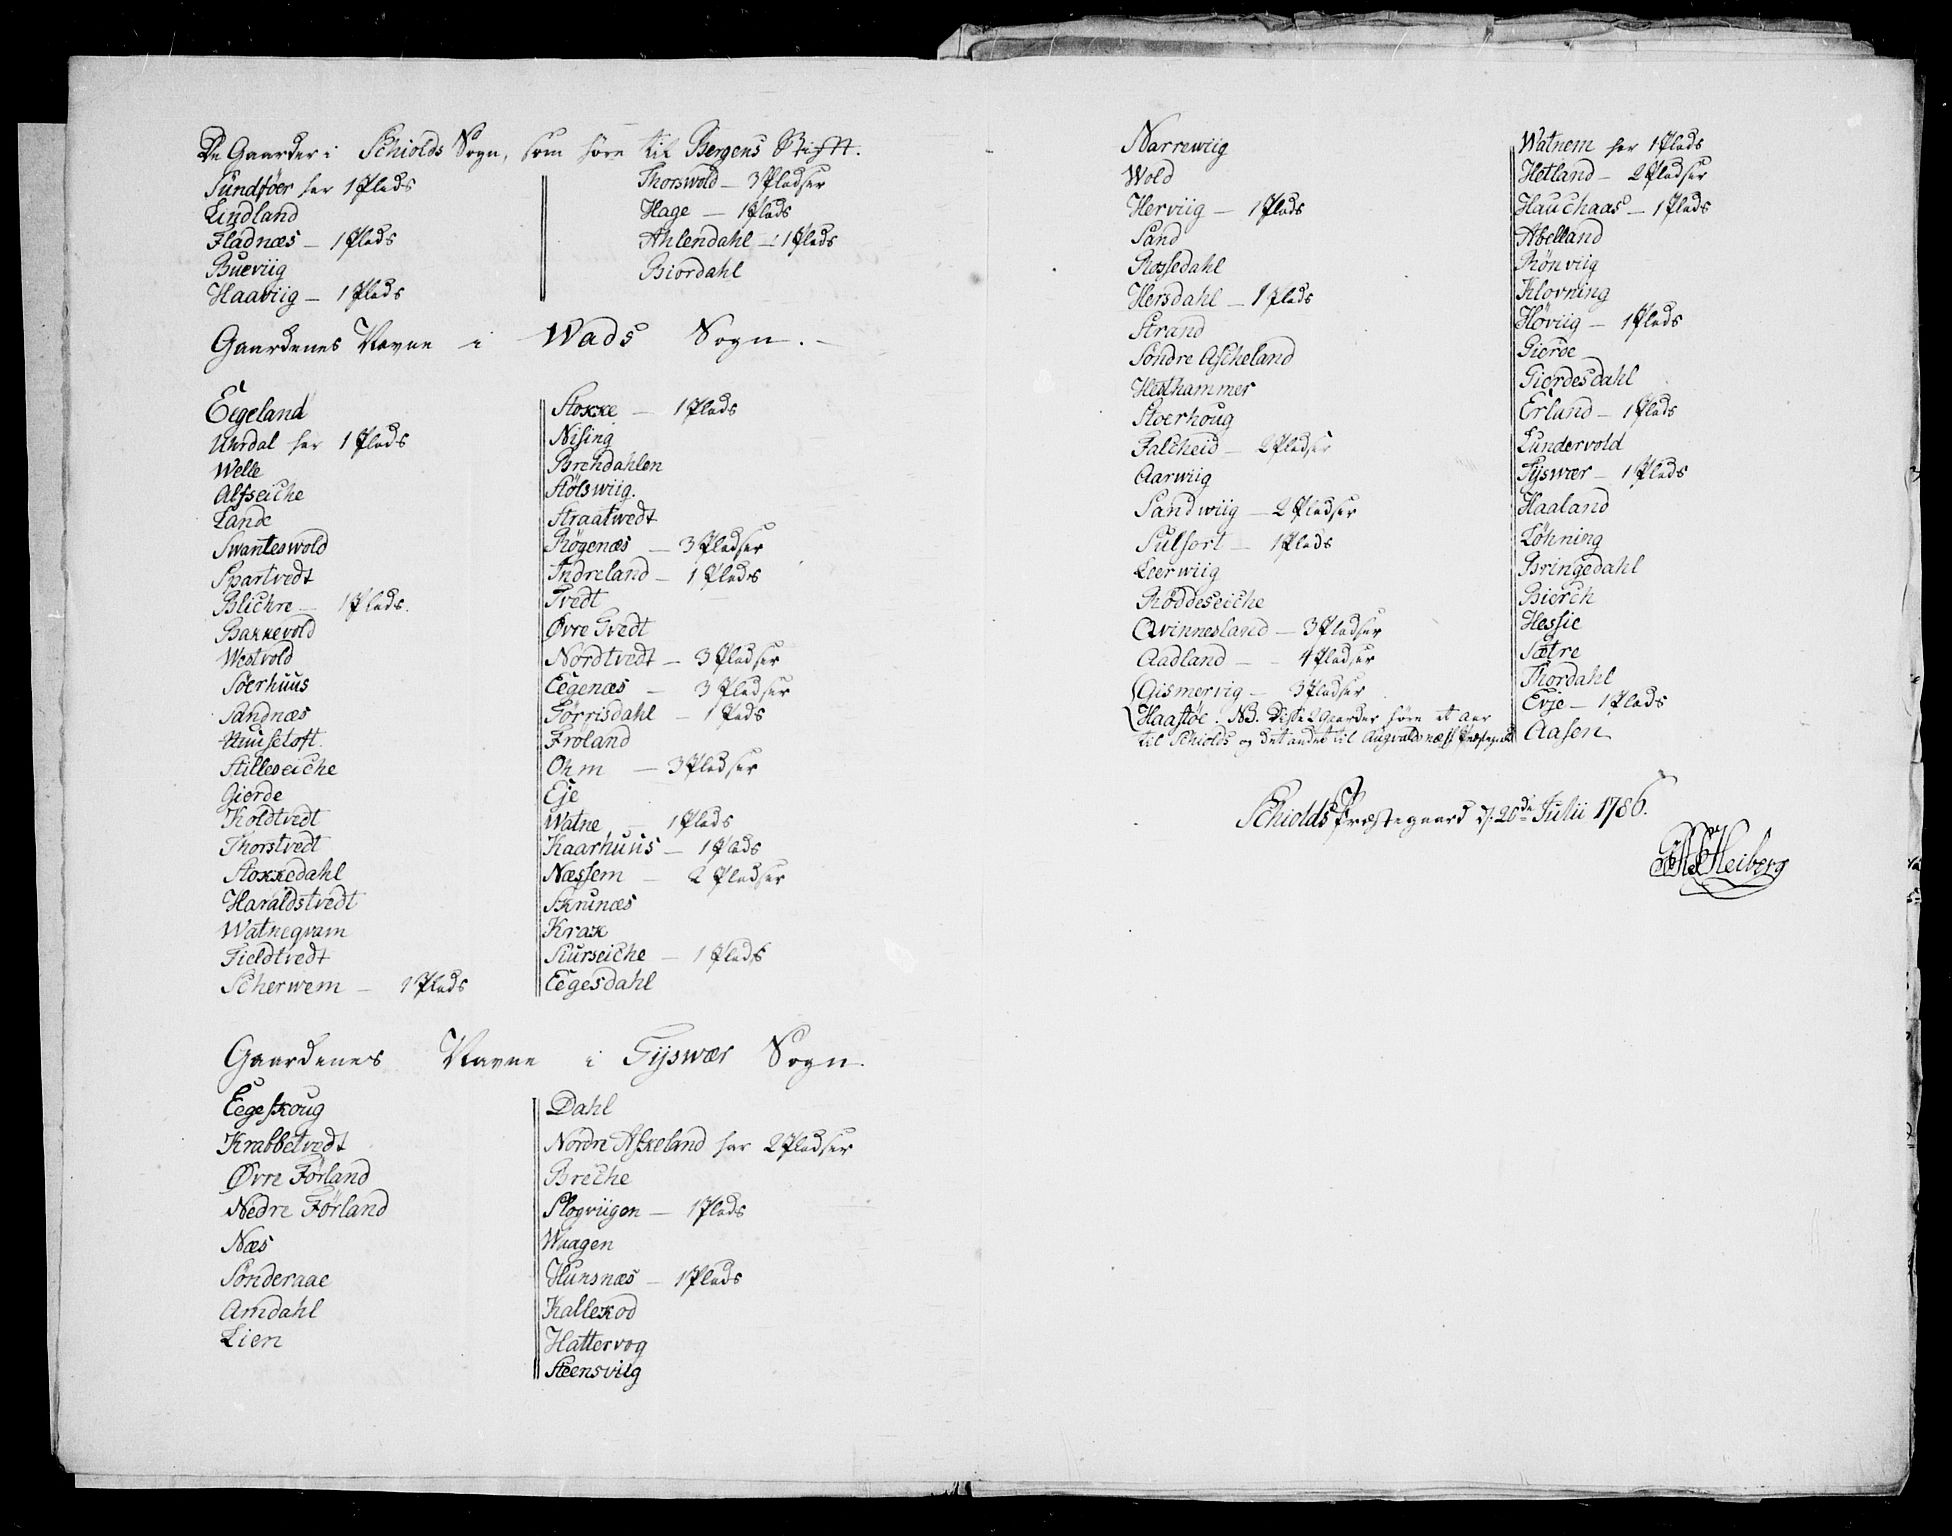 De Gaarder i Schiolds Sogn, som høre til Bergens Stift.
Sundføer har 1 Plads
Lindland
Fladnæs — 1 Plads
Bueviig
Haaviig — 1 Plads
Thorswold — 3 Pladser
Hage — 1 Plads
Ahlendahl — 1 Plads
Biordahl
Gaardenes Navne i Wads Sogn.
Eegeland
Uhrdal har 1 Plads
Welle
Alfseiche
Lande
Swanteswold
Spartvedt
Blichre — 1 Plads.
Bakkevold
Westvold
Søerhuus
Sandnæs
Huusetoft.
Stilleseiche
Gierde
Koldtvedt
Thorstvedt
Stokkedahl
Haraldstvedt
Watneqvam
Fieldtvedt
Scherwem — 1 Plads
Stokke — 1 Plads
Nising
Brendahlen
Stølswiig.
Straatwedt
Røgenæs — 3 Pladser
Indreland — 1 Plads
Tvedt
Øvre Tvedt
Nordtvedt — 3 Pladser
Eegenæs — 3 Pladser
Førrisdahl — 1 Plads
Frøland
Ohm — 3 Pladser
Eje
Watne — 1 Plads
Kaarhuus — 1 Plads
Næssem — 2 Pladser
Skrunæs
Krak
Sturseiche — 1 Plads
Eegesdahl
Gaardenes Navne i Tysswær Sogn.
Eegeskoug
Krabbetvedt
Øvre Førland
Nedre Førland
Næs
Sønderaae
Amdahl
Lien
Dahl
Nordre Askeland har 2 Pladser
Breche
Slogviigen — 1 Plads
Waagen
Hunsnæs — 1 Plads
Kallekod
Hattervog
Steensviig
Narrewiig
Wold
Herviig — 1 Plads
Sand
Rossedahl
Hersdahl — 1 Plads
Strand
Søndre Ascheland
Hesthammer
Stoerhoug
Falcheid — 2 Pladser
Aarwiig
Sandwiig — 2 Pladser
Sulfort — 1 Plads
Leerwiig
Røddeseiche
Qvinnesland — 3 Pladser
Aadland — 4 Pladser
Gismervig — 3 Pladser
Haastøe. NB. Disse 2 Gaarder høre et Aar
til Schiolds og det andet til Augvaldsnæss Præstegield
Watnem har 1 Plads
Hetland — 2 Pladser
Hauchaas — 1 Plads
Abelland
Rønviig
Klovning
Høviig — 1 Plads
Gierde
Gierdesdahl
Erland — 1 Plads
Lundervold
Tysswær — 1 Plads
Haaland
Løhning
Bringedahl
Bierch
Hessie
Sætre
Thordahl
Evje — 1 Plads
Aasen
Schiolds Præstegaard d. 20de Julii 1786.
Heiberg